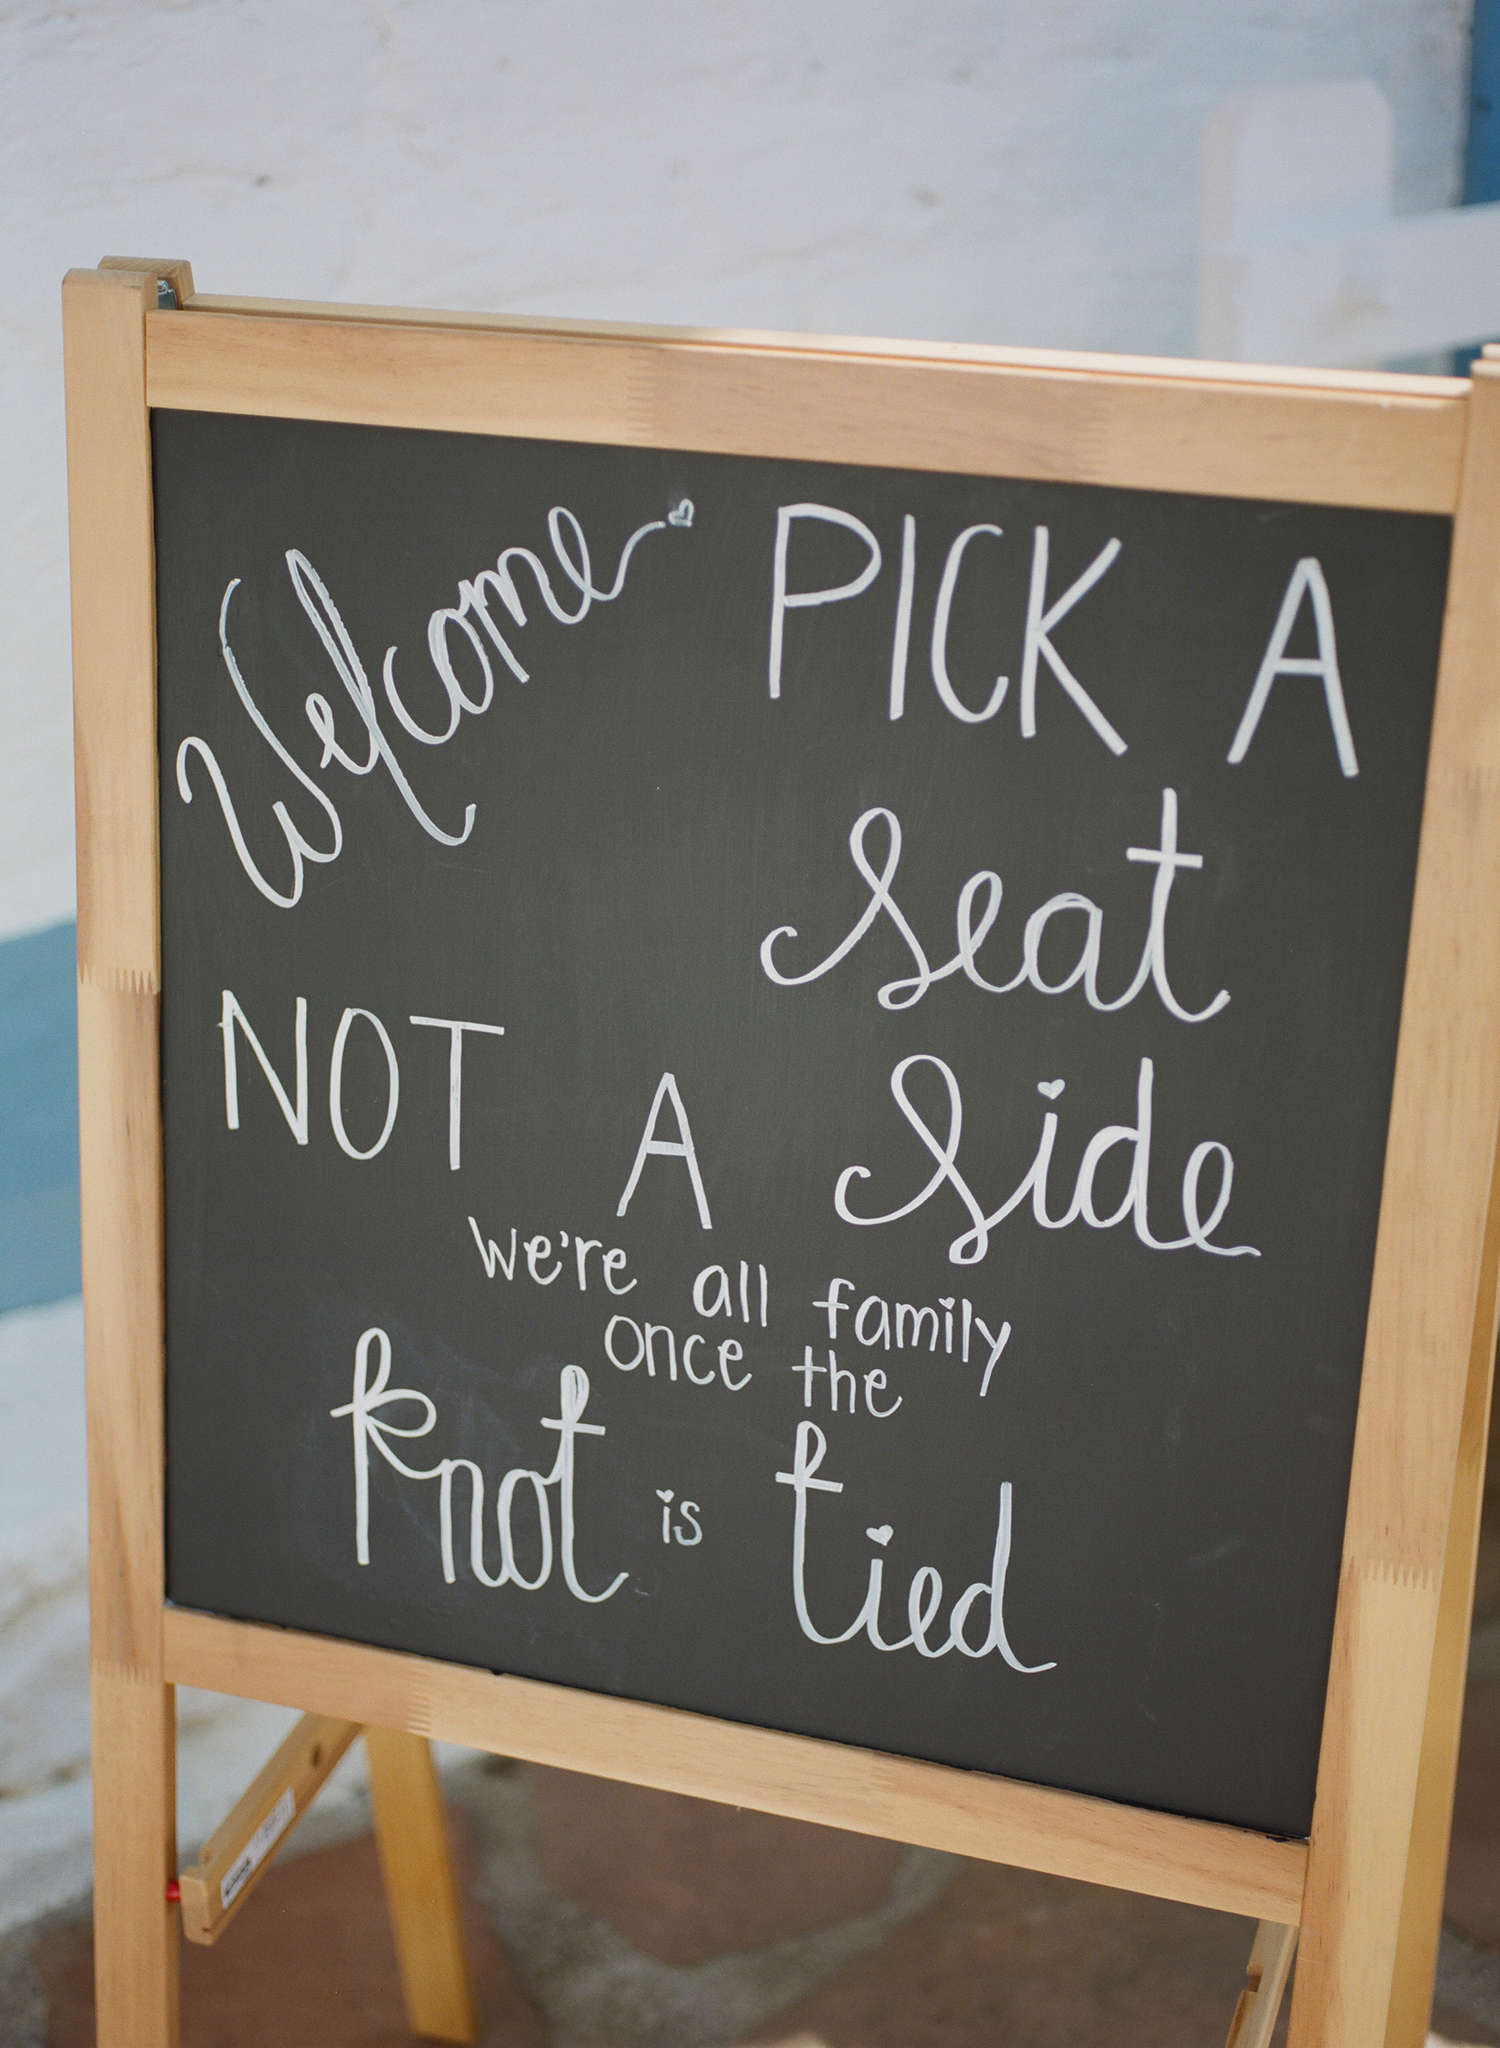 Welcome PICK A
seat
NOT A side
we're all family
once the
knot is tied